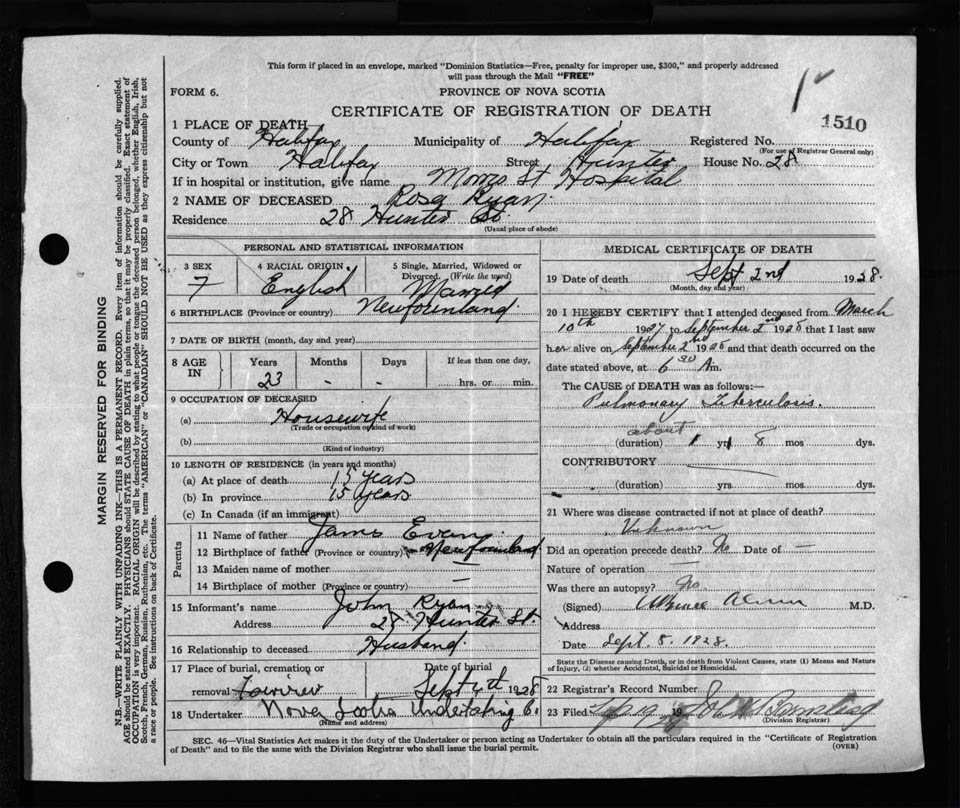 This form if placed in an envelope, marked "Dominion Statistics—Free, penalty for improper use, $300," and properly addressed
will pass through the Mail "FREE"
FORM 6.
PROVINCE OF NOVA SCOTIA
CERTIFICATE OF REGISTRATION OF DEATH
1510
1 PLACE OF DEATH
County of Halifax Municipality of Halifax Registered No.
(For use of Registrar General only)
City or Town Halifax Street Hunter House No. 28
If in hospital or institution, give name Morris St Hospital
2 NAME OF DECEASED Rosa Ryan.
Residence 28 Hunter St.
(Usual place of abode)
MARGIN RESERVED FOR BINDING
N.B.—WRITE PLAINLY WITH UNFADING INK—THIS IS A PERMANENT RECORD. Every item of information should be carefully supplied.
AGE should be stated EXACTLY. PHYSICIANS should STATE CAUSE OF DEATH in plain terms, so that it may be properly classified. Exact statement of
OCCUPATION is very important. RACIAL ORIGIN will be described by stating to what people or tongue the deceased person belonged, whether English, Irish,
Scotch, French, German, Russian, Ruthenian, etc. The terms "AMERICAN" or "CANADIAN" SHOULD NOT BE USED as they express citizenship but not
a race or people. See instructions on back of Certificate.
PERSONAL AND STATISTICAL INFORMATION
3 SEX 4 RACIAL ORIGIN 5 Single, Married, Widowed or
Divorced. (Write the word)
F English Married
6 BIRTHPLACE (Province or country) Newfounland
7 DATE OF BIRTH (month, day and year)
8 AGE IN Years Months Days If less than one day,
23 - - hrs. or min.
9 OCCUPATION OF DECEASED
(a) Housewife
(Trade or occupation or kind of work)
(b)
(Kind of industry)
10 LENGTH OF RESIDENCE (in years and months)
(a) At place of death 15 years
(b) In province 15 years
(c) In Canada (if an immigrant)
Parents
11 Name of father James Evans.
12 Birthplace of father (Province or country) Newfounland
13 Maiden name of mother —
14 Birthplace of mother (Province or country) —
15 Informant's name John Ryan
Address 28 Hunter St.
16 Relationship to deceased Husband.
17 Place of burial, cremation or Date of burial
removal Fairview Sept 4th 1928
18 Undertaker Nova Scotia Undertaking Co.
(Name and address)
MEDICAL CERTIFICATE OF DEATH
19 Date of death Sept 2nd 1928.
(Month, day and year)
20 I HEREBY CERTIFY that I attended deceased from March
10th 1927 to September 2nd 1928 that I last saw
her alive on September 2nd 1928 and that death occurred on the
date stated above, at 6 30 Am.
The CAUSE of DEATH was as follows:—
Pulmonary Tuberculosis.
about
(duration) 1 yrs 8 mos dys.
CONTRIBUTORY
(duration) yrs mos dys.
21 Where was disease contracted if not at place of death?
Unknown
Did an operation precede death? No Date of —
Nature of operation —
Was there an autopsy? No
(Signed) M.D.
Address
Date Sept. 5. 1928.
State the Disease causing Death, or in death from Violent Causes, state (1) Means and Nature
of Injury, (2) whether Accidental, Suicidal or Homicidal.
22 Registrar's Record Number
23 Filed 19
(Division Registrar)
SEC. 46—Vital Statistics Act makes it the duty of the Undertaker or person acting as Undertaker to obtain all the particulars required in the "Certificate of Registration
of Death" and to file the same with the Division Registrar who shall issue the burial permit.
(OVER)